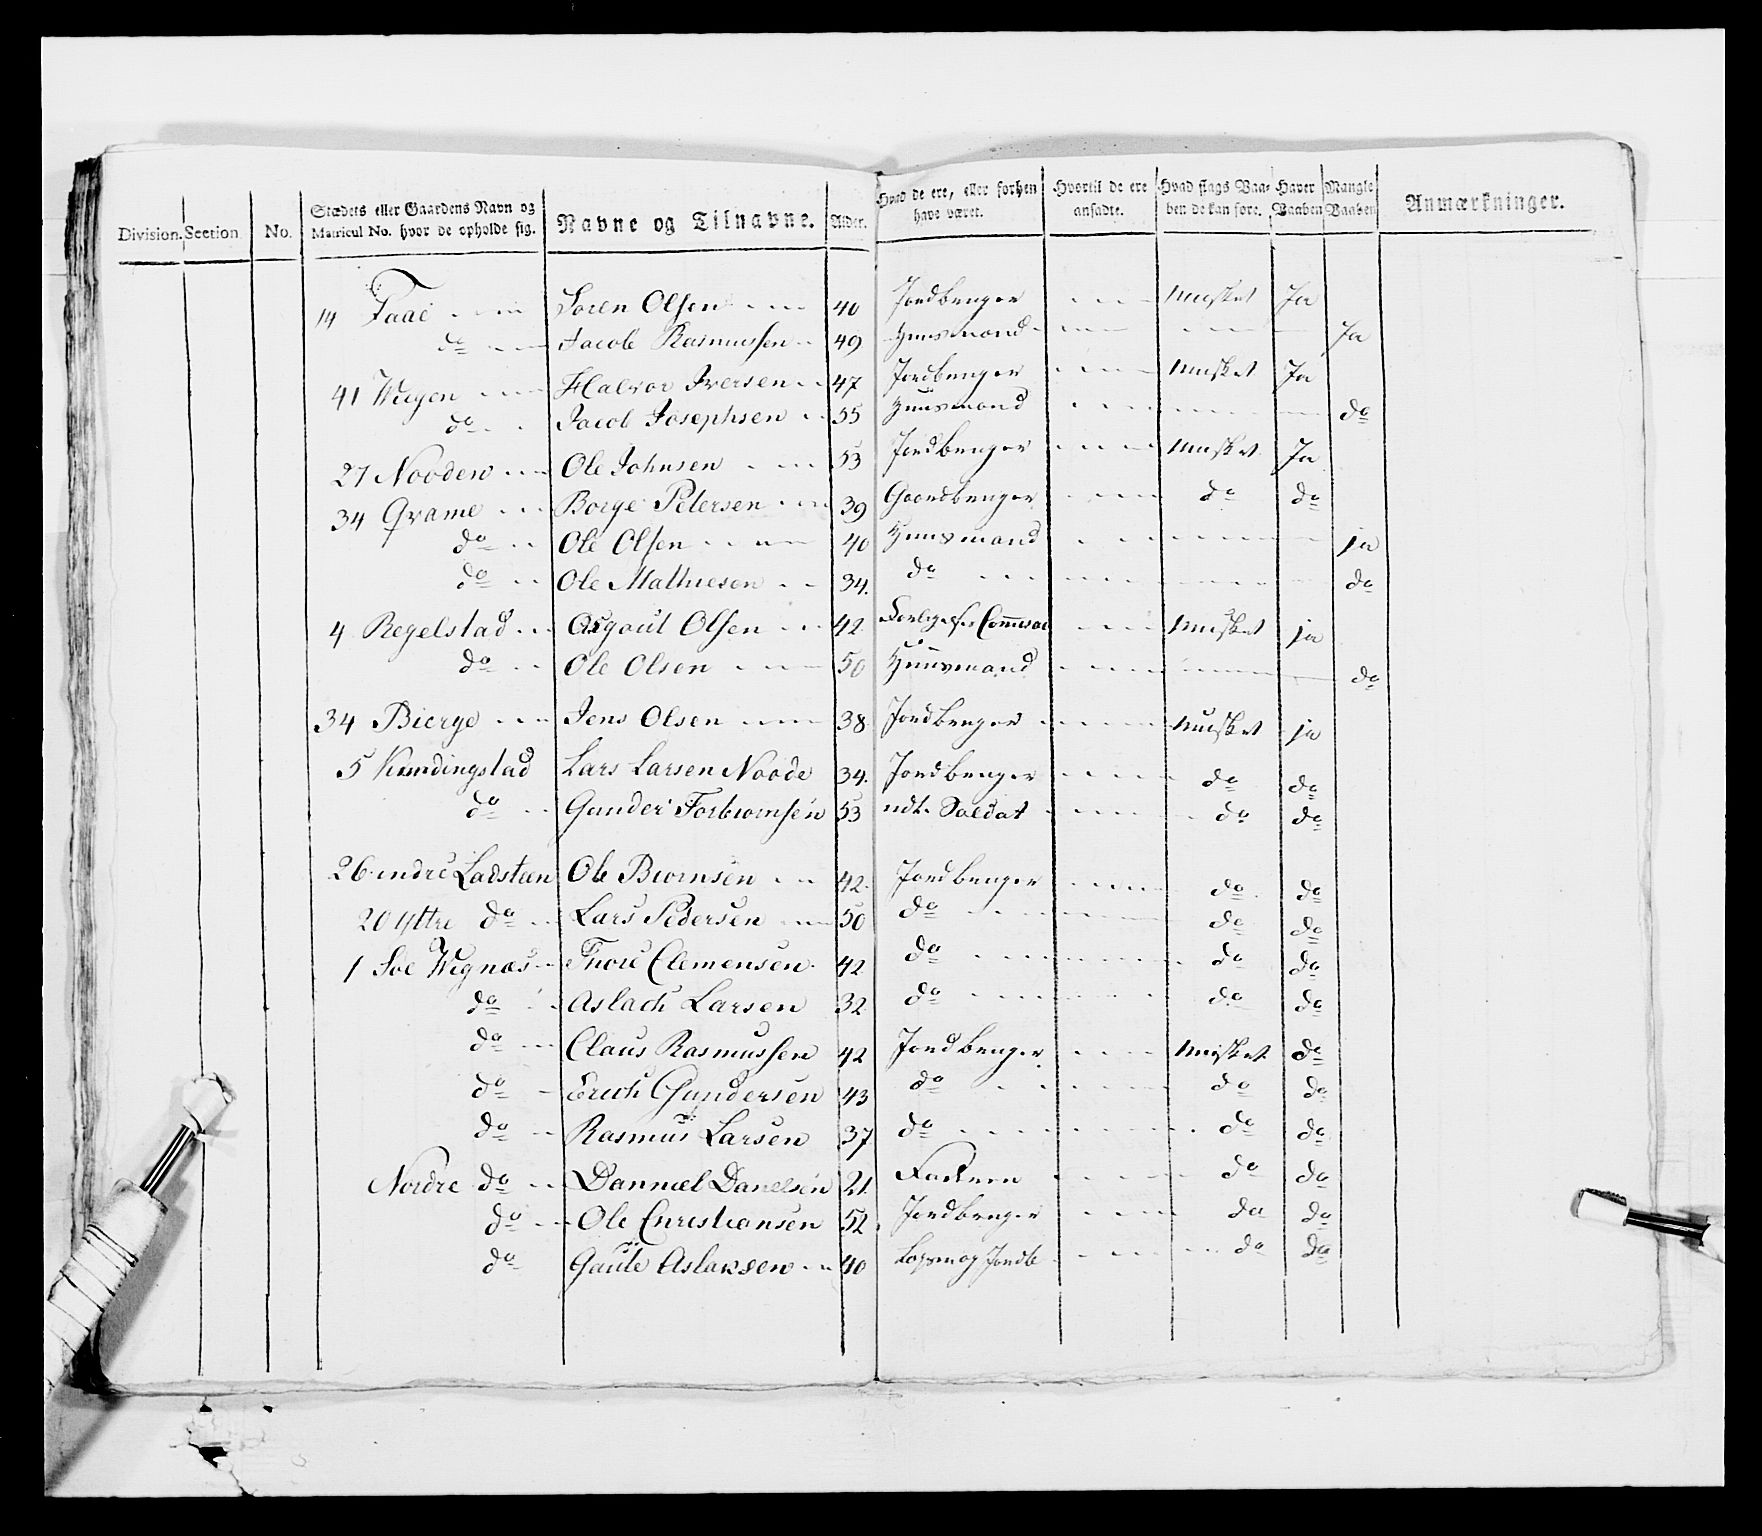 Division. Section No. Stædets eller Gaardens Navn og Matricul No. hvor de opholde sig. Navne og Tilnavne. Alder. Hvad de ere, eller forhen have været. Hvortil de ere ansadte. Hvad slags Vaaben de kan føre. Haver Vaaben Mangle Vaaben Anmærkninger.
14 Faae Soren Olsen 40 Jordbruger Musket Ja
do Jacob Rasmussen 49 Huusmand Ja
41 Wiegen Halvor Iversen 47 Jordbruger Musket Ja
do Jacob Josephsen 55 Huusmand do
27 Nooden Ole Johnsen 53 Jordbruger Musket Ja
34 Qvame Borge Petersen 39 Gaardbruger do do
do Ole Olsen 40 Huusmand ja
do Ole Mathiesen 34. do do
4 Regelstad Asgout Olsen 42 Musket ja
do Ole Olsen 50 Huusmand do
34 Bierge Jens Olsen 38 Jordbruger Musket ja
5 Kindingstad Lars Larsen Noode 34. Jordbruger do do
do Gunder Torbiornsen 53 udt. Soldat do do
26 indre Ladsteen Ole Biornsen 42. Jordbruger do do
20 yttre do Lars Pedersen 50 do do do
1 Soe Wignæs Thore Clemensen 42 do do do
do Aslach Larsen 32 do do do
do Claus Rasmussen 42 Jordbruger Musket do
do Erich Gundersen 43 do do do
do Rasmus Larsen 37 do do do
Nordre do Danniel Danelsen 21. do do
do Ole Christiansen 52. Jordbruger do do
do Gaute Aslaksen 40 do do